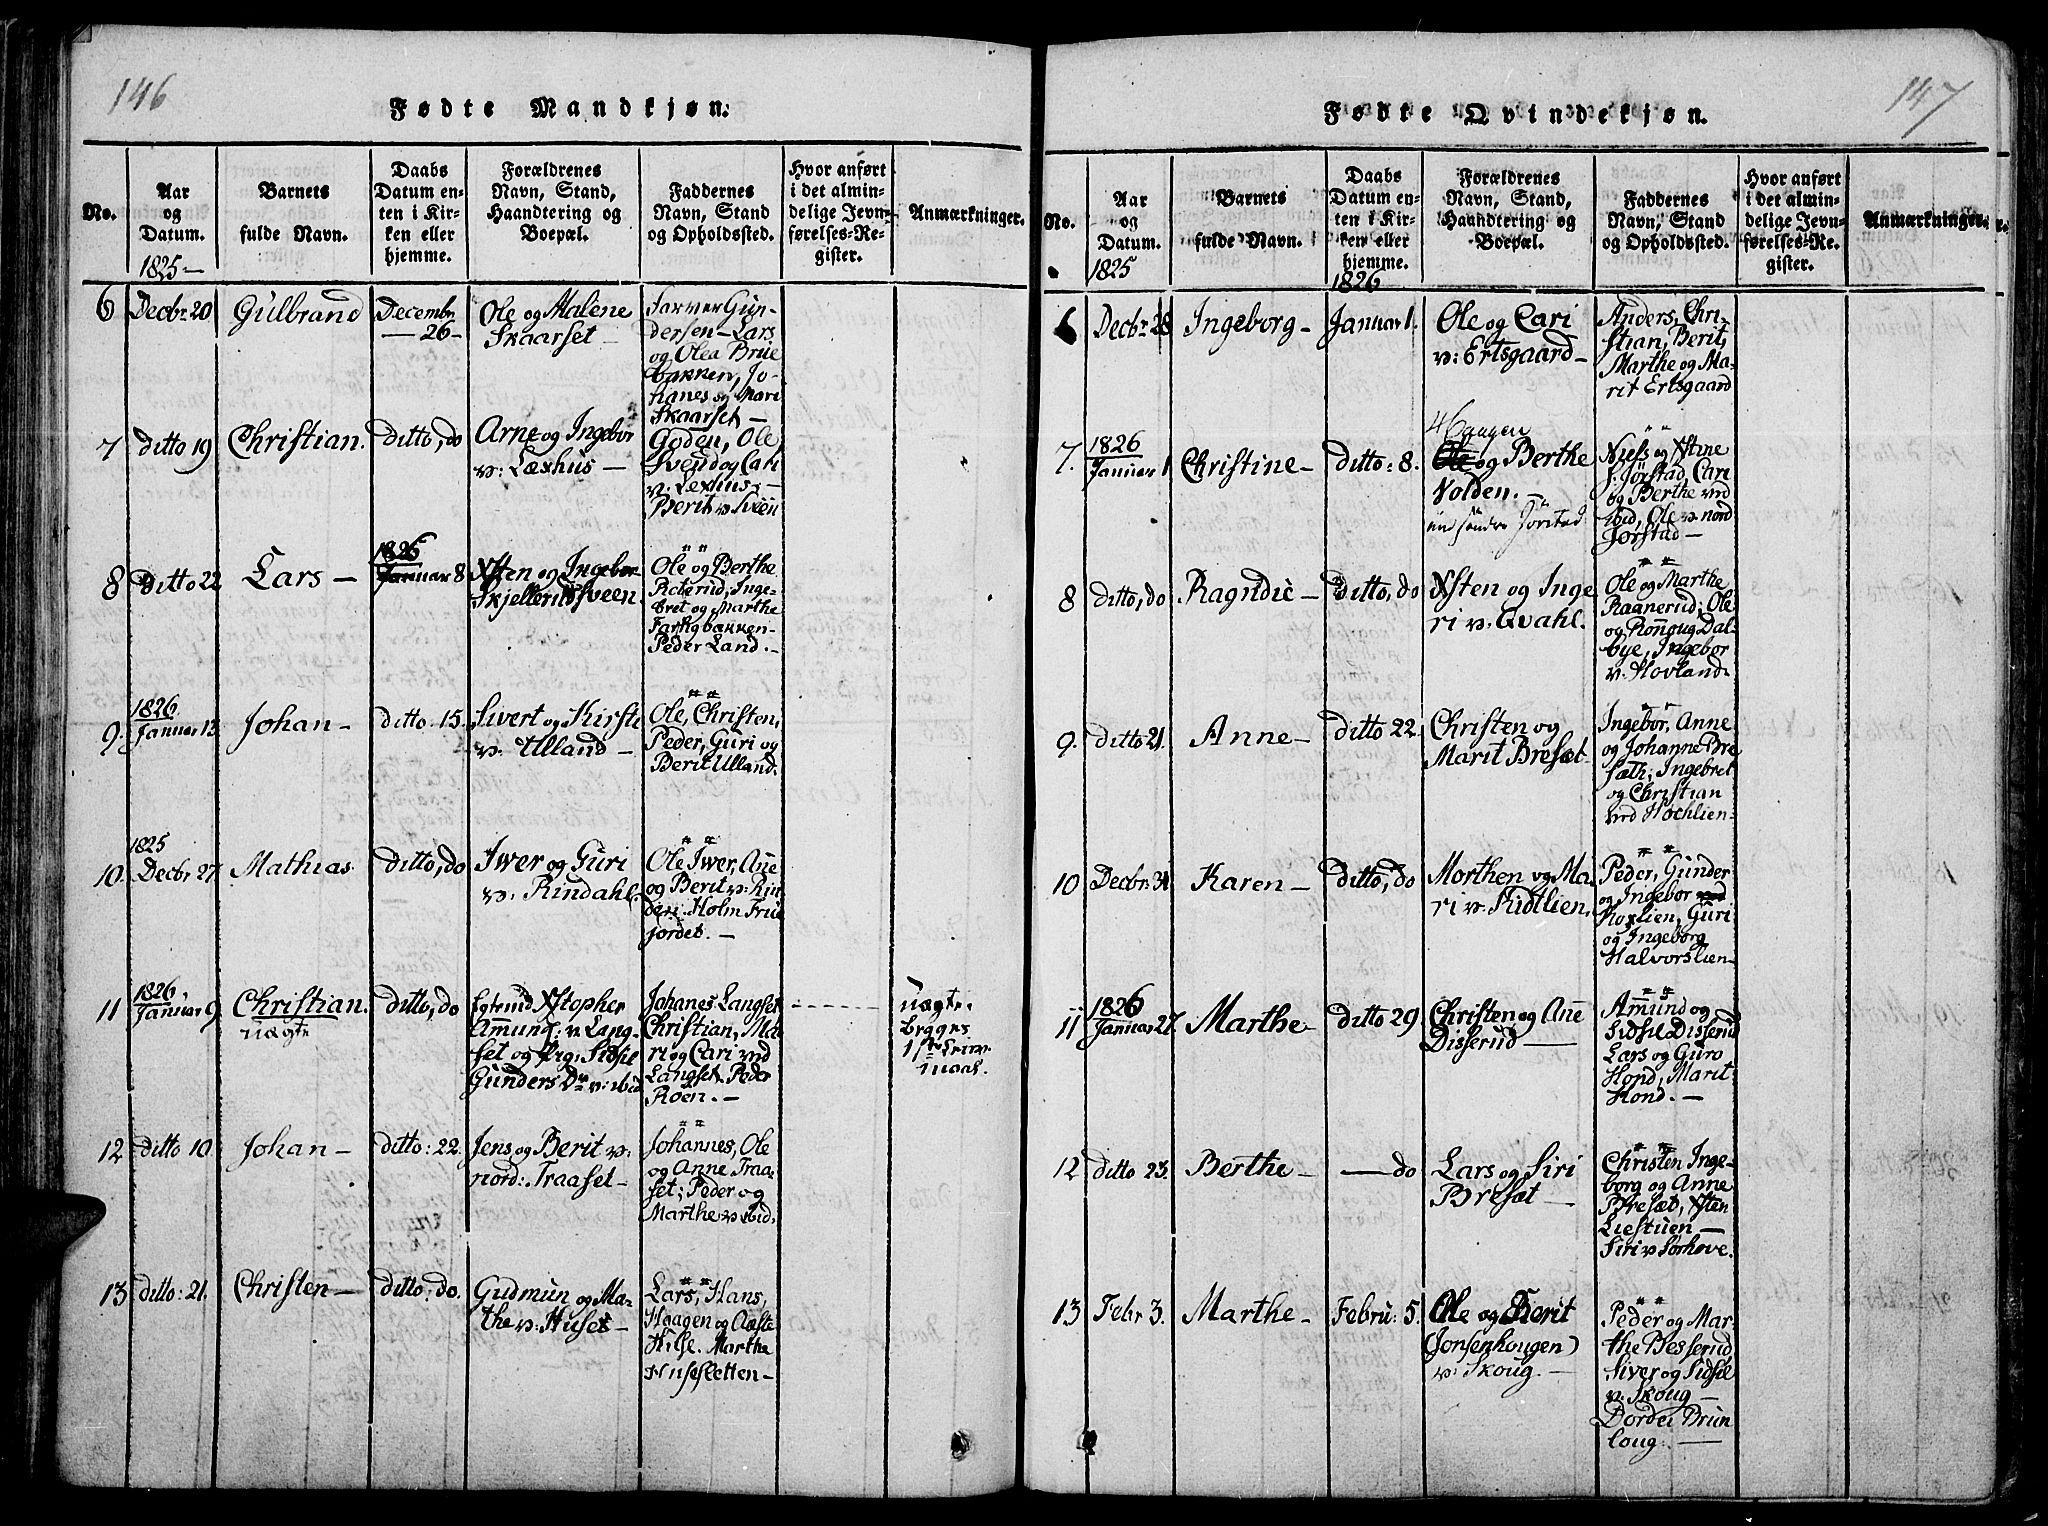 146
Fødte Mandkjøn.
No.
Aar
og
Datum.
1825 —
Barnets
fulde Navn.
Daabs
Datum en-
ten i Kir-
ken eller
hjemme.
Forældrenes
Navn, Stand,
Haandtering og
Boepæl.
Faddernes
Navn, Stand
og Opholdssted.
Hvor anført
i det almin-
delige Jevn-
førelses-Re-
gister.
Anmærkninger.
6
Decbr. 20
Gulbrand
Decembr.
— 26 —
Ole og Malene
Skaarset —
Farver Gun-
dersen — Lars
og Olea Brue
bakken, Jo-
hanes og Mari
Skaarset —
7
ditto 19
Christian.
ditto, do
Arne og Ingebor
v: Læxhus —
Goden, Ole
Svend og Cari
v: Lexhus —
Berit v: Sveen
8
Ditto 22
Lars —
1826
Januar 8
Xsten og Ingebor
Skjellerudsveen.
Ole og Berthe
Roterud, Inge-
bret og Marthe
bakken —
Peder Land. —
9.
1826
Januar 13
Johan —
ditto: 15.
Sivert og Kirsti
v: Ulland —
Ole, Christen,
Peder, Guri og
Berit Ulland.
10.
1825
Decbr. 27
Mathias
ditto, do
Iwer og Guri
v: Rindahl.
Ole Iwer, Ane
og Berit v: Rin
den. Holm Frue
jordet. —
11
1826
Januar 9
Christian.
uægte
ditto, do
Xstopher
Amund: v: Lang-
set og Pig: Sidsel
Gunders Dr v: ibid
Johanes Langset
Christian, Ma-
ri og Cari ved
Langset. Peder
Roen. —
uægte
begges
1ste Leier-
maal.
12
ditto 10
Johan —
ditto: 22.
Jens og Berit v:
nord: Traaset —
Johannes, Ole
og Anne Traa-
set; Peder og
Marthe v: ibid.
13
ditto: 21.
Christen —
ditto: do.
Gudmun og Ma-
the v: Huset —
Lars, Hans,
Haagen og Aaste
Hilse. Marthe
Husesletten —
147
Fødte Qvindekjøn.
No.
Aar
og
Datum.
1825
Barnets
fulde Navn.
Daabs
Datum en-
ten i Kir-
ken eller
hjemme.
1826
Forældrenes
Navn, Stand,
Haandtering og
Boepæl.
Faddernes
Navn, Stand
og Opholdssted.
Hvor anført
i det almin-
delige Jevn-
førelses-Re-
gister.
Anmærkninger.
6
Decbr. 28
Ingeborg —
Januar 1.
Ole og Cari
v: Ertsgaard —
Anders, Chri-
stian, Berit,
Marthe og Ma-
rit Ertsgaard
7.
1826
Januar 1
Christine —
Ditto: 8.
Ole og Berthe
Volden. —
søndre Jörstad
Niels og Xstine
s. Jørstad, Cari
og Berthe ved
ibid, Ole v: nord
Jørstad —
8
ditto, do
Ragndic —
ditto, do
Xsten og Inge
ri v: Qvahl.
Ole og Marthe
Raanerud; Ole
og Rønnoug Dal-
bye, Ingebor
v: Hovland.
9.
ditto 21.
Anne —
ditto 22.
Christen og
Marit Bresæt —
Ingebor, Anne
og Johanne Bre
sæth; Ingebret
og Christian
ved Høchlien —
10
Decbr. 31
Karen —
ditto, do
Morthen og Ma-
ri v: Rudtlien.
Peder, Gunder
og Ingebor ved
Roxlien, Guri
og Ingeborg
Halvorslien —
11
1826
Januar 27.
Marthe —
ditto 29
Christen og Ane
Disserud —
Amund og
Sidsil Disserud
Lars og Guro
Hond, Marit
Hond. —
12
ditto 23.
Berthe —
— do
Lars og Siri
Bresæt —
Christen Inge-
borg og Anne
Bresæt, Xsten
Liestuen —
Siri v: Sørhove.
13
Febr 3.
Marthe —
Febru: 5.
Ole og Berit
(Jonsenhougen)
v: Skoug. —
Peder og Mar-
the Besserud
Siver og Sidsel
v: Skoug —
Dorder Brun
loug. —